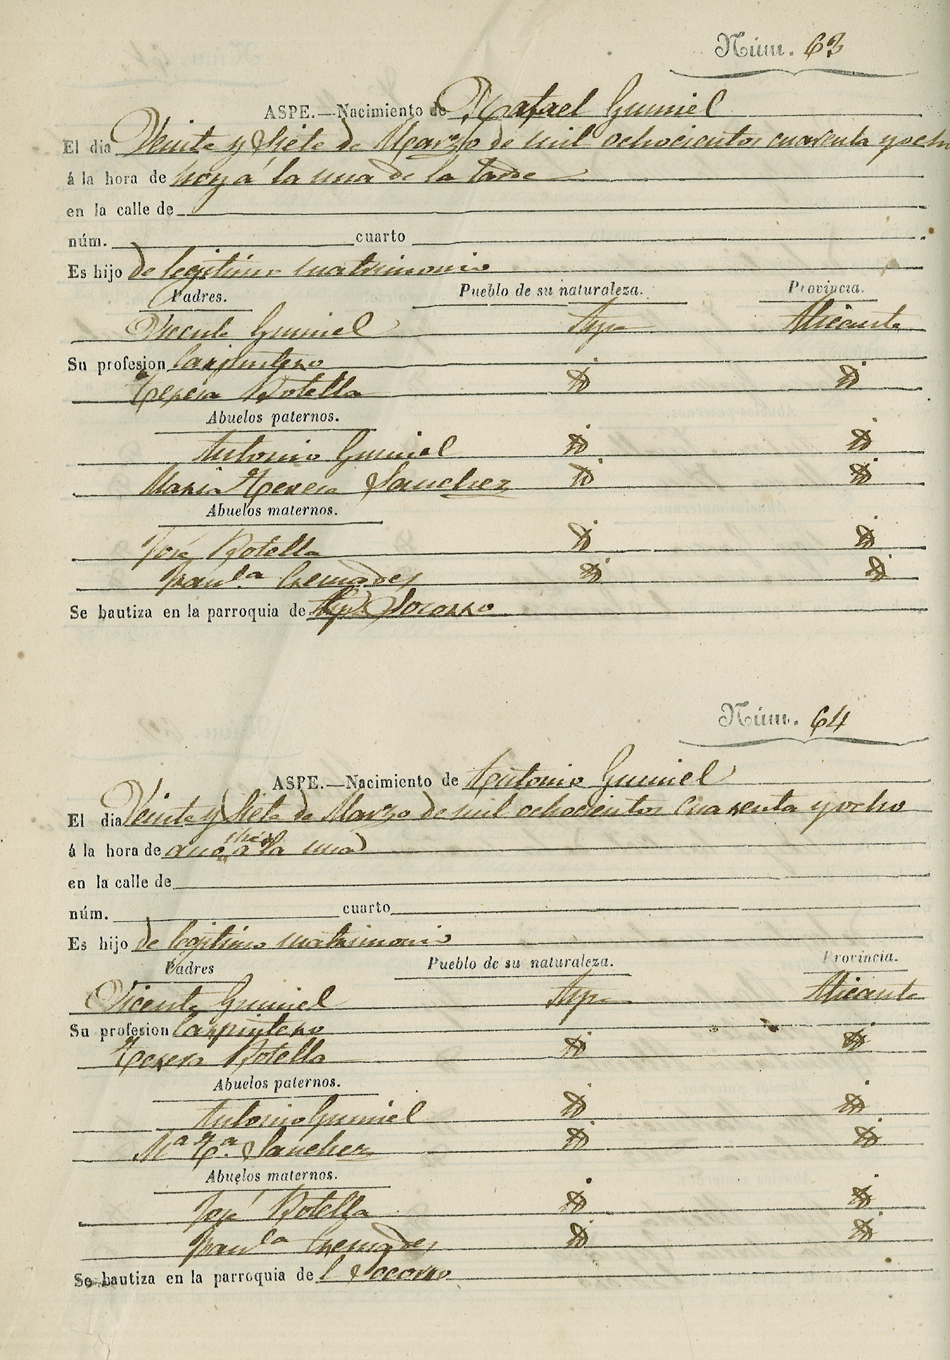 Núm. 63
ASPE.—Nacimiento de Rafael Gumiel
El dia Veinte y Siete de Marzo de mil ochocientos cuarenta y och
á la hora de hoy á la una de la tarde
en la calle de
núm. cuarto
Es hijo de legitimo matrimonio
Padres. Pueblo de su naturaleza. Provincia.
Vicente Gumiel Aspe Alicante
Su profesion Carpintero
Teresa Botella id id
Abuelos paternos.
Antonio Gumiel id id
Maria Teresa Sanchez id id
Abuelos maternos.
José Botella id id
Fran.ca Cremades id id
Se bautiza en la parroquia de Socorro
Núm. 64
ASPE.—Nacimiento de Antonio Gumiel
El dia Veinte y Siete de Marzo de mil ochocientos cuarenta y ocho
á la hora de á la una
en la calle de
núm. cuarto
Es hijo de legitimo matrimonio
Padres Pueblo de su naturaleza. Provincia.
Vicente Gumiel Aspe Alicante
Su profesion Carpintero
Teresa Botella id id
Abuelos paternos.
Antonio Gumiel id id
Mª Tª Sanchez id id
Abuelos maternos.
José Botella id id
Fran.ca Cremades id id
Se bautiza en la parroquia de l Socorro